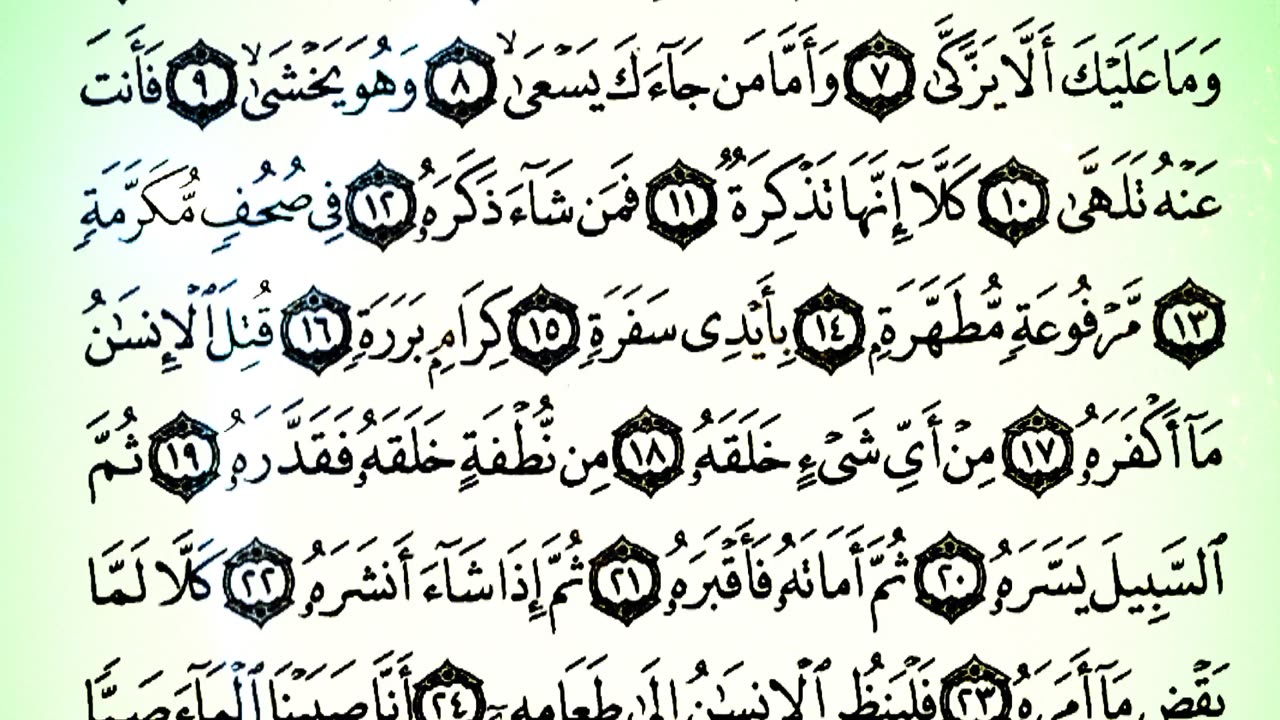 وَمَا عَلَيْكَ أَلَّا يَزَّكَّىٰ ٧ وَأَمَّا مَن جَآءَكَ يَسْعَىٰ ٨ وَهُوَ يَخْشَىٰ ٩ فَأَنتَ
عَنْهُ تَلَهَّىٰ ١٠ كَلَّآ إِنَّهَا تَذْكِرَةٌ ١١ فَمَن شَآءَ ذَكَرَهُۥ ١٢ فِى صُحُفٍ مُّكَرَّمَةٍ
١٣ مَّرْفُوعَةٍ مُّطَهَّرَةٍۭ ١٤ بِأَيْدِى سَفَرَةٍ ١٥ كِرَامٍۭ بَرَرَةٍ ١٦ قُتِلَ ٱلْإِنسَٰنُ
مَآ أَكْفَرَهُۥ ١٧ مِنْ أَىِّ شَىْءٍ خَلَقَهُۥ ١٨ مِن نُّطْفَةٍ خَلَقَهُۥ فَقَدَّرَهُۥ ١٩ ثُمَّ
ٱلسَّبِيلَ يَسَّرَهُۥ ٢٠ ثُمَّ أَمَاتَهُۥ فَأَقْبَرَهُۥ ٢١ ثُمَّ إِذَا شَآءَ أَنشَرَهُۥ ٢٢ كَلَّا لَمَّا
يَقْضِ مَآ أَمَرَهُۥ ٢٣ فَلْيَنظُرِ ٱلْإِنسَٰنُ إِلَىٰ طَعَامِهِۦٓ ٢٤ أَنَّا صَبَبْنَا ٱلْمَآءَ صَبًّا